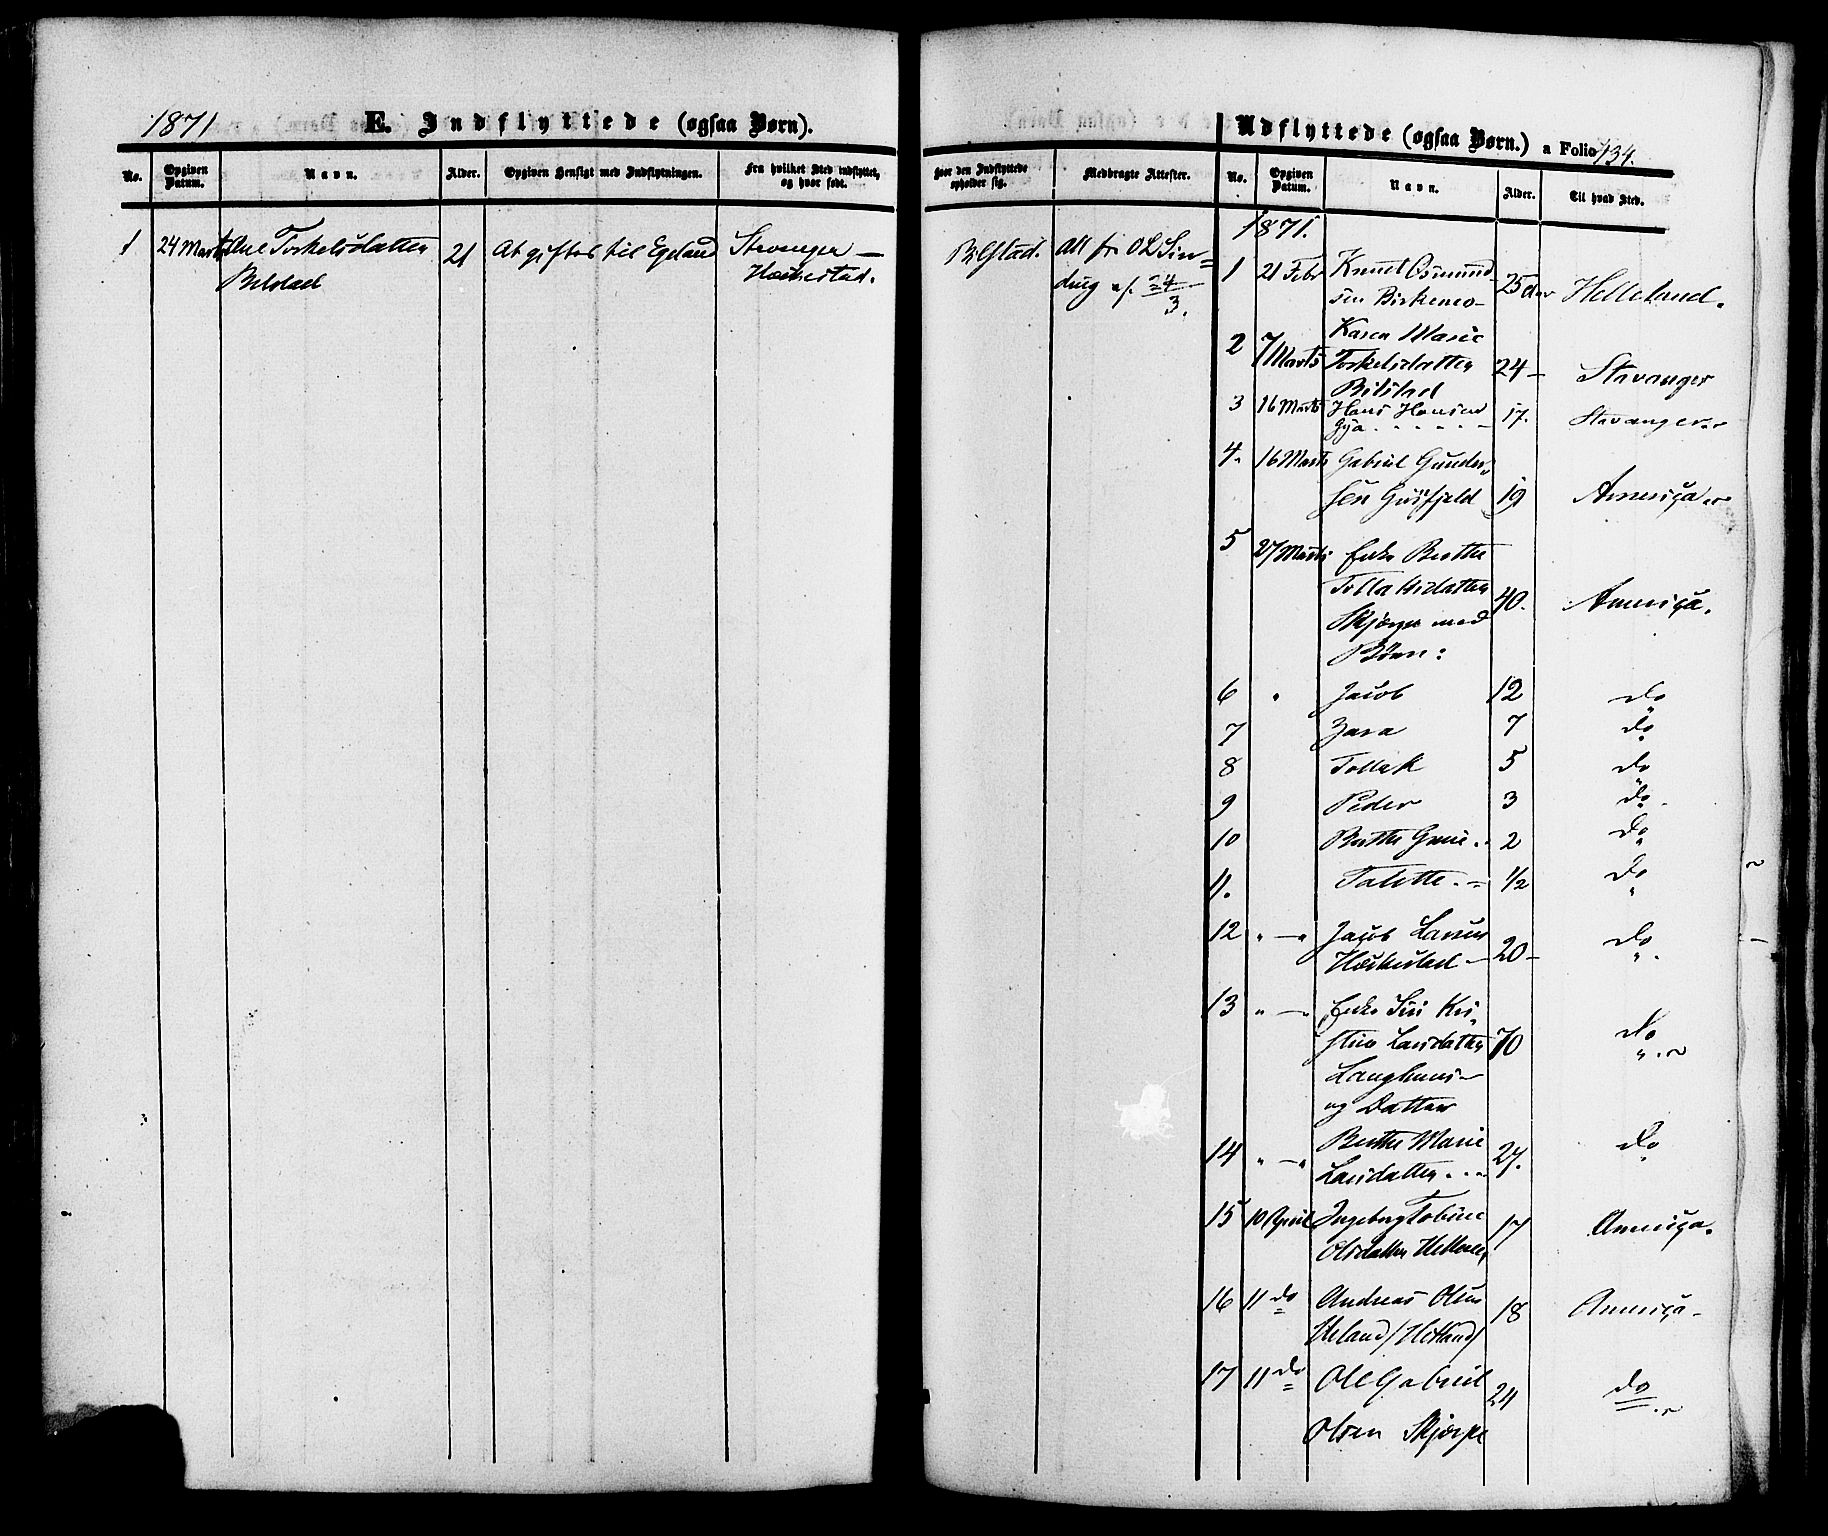 1871
E. Indflyttede (ogsaa Børn).
No.
Opgiven Datum.
Navn.
Alder.
Opgiven Hensigt med Indflytningen.
Fra hvilket Sted indflyttet, og hvor født.
1 24 Marts Torkelsdatter 21 At giftes til Egeland Stavanger —
Bilstad Hæskestad.
Udflyttede (ogsaa Børn.) a Folio 134.
hvor den Indflyttede opholder sig.
Medbragte Attester.
No.
Opgiven Datum.
Navn.
Alder.
Til hvad Sted.
Bilstad. Att fra O L Sin=
ding af 24/3.
1871.
1 21 Febr Knud Osmund
sen Birkemo 25 Aar Helleland.
2 7 Marts Karen Marie
Torkelsdatter 24 — Stavanger
Bilstad
3 16 Marts Hans Hansen 17. Stavanger
Gya
4. 16 Marts Gabriel Gunder
sen 19 America
5 27 Marts Enke Berthe
Tollaksdatter 40. America.
Skjærpe med
Børn:
6 " Jacob 12 do
7 Zara 7 do
8 Tollak 5 do
9 Peder 3 do
10 Berthe Gurie 2 do
11. Talette 1/2 do
12 " — " Jacob Larsen
Hæskestad — 20 — do
13 " — " Enke Siri Kri
stine Larsdatter 70 do
og Datter
14 " — " Berthe Marie 27. do
Larsdatter
15 10 April Ingeborg Tobine 17 America.
Olsdatter
16 11 do Andreas Olsen 18 America
Ueland / Hetland /
17 11 do Ole Gabriel 24 do
Olsen Skjærpe